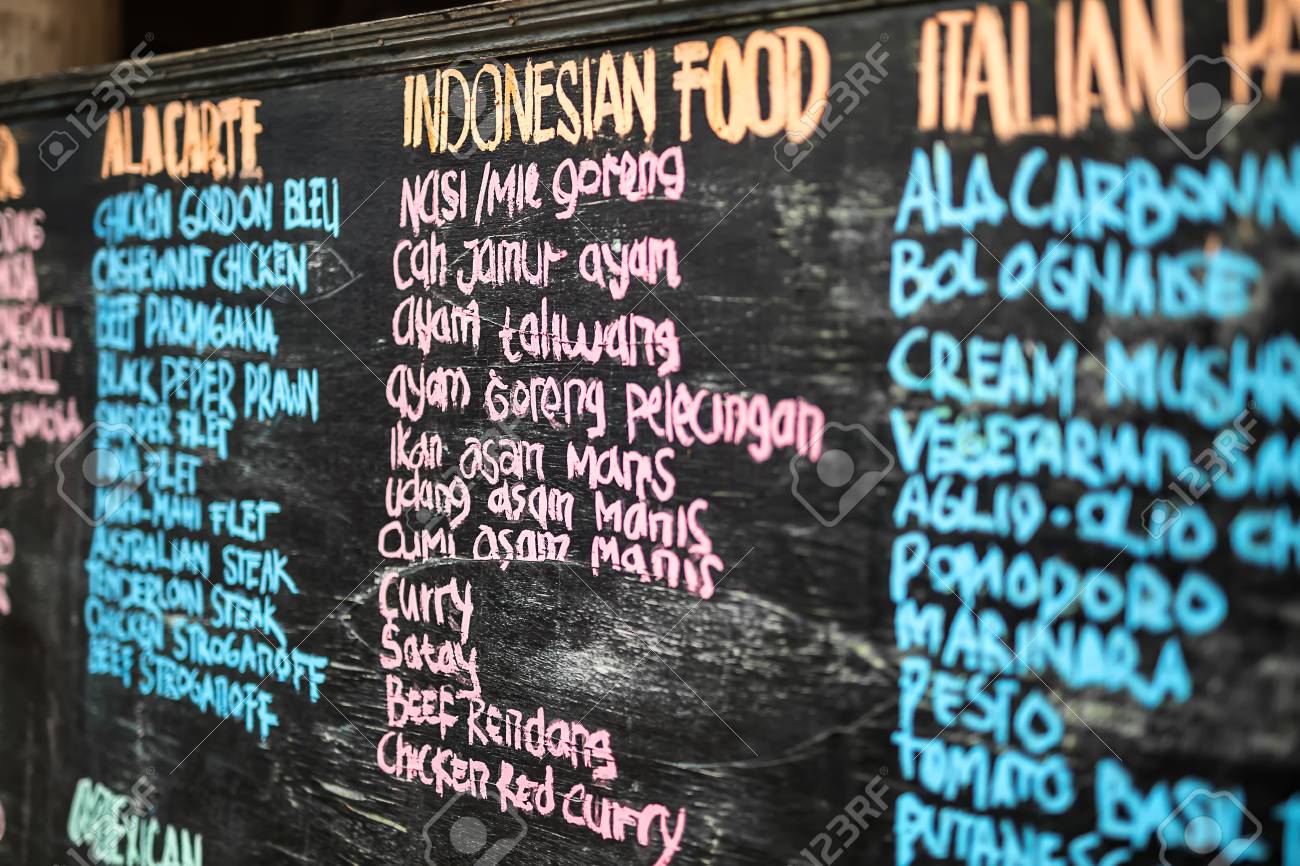 ALACARTE
CHICKEN GORDON BLEU
CASHEWNUT CHICKEN
BEEF PARMIGIANA
BLACK PEPER PRAWN
SNAPER FILET
FILET
MAHI-MAHI FLET
ASTRALIAN STEAK
TENDERLOIN STEAK
CHICKEN STROGANOFF
BEEF STROGANOFF
INDONESIAN FOOD
NASI/MIE goreng
cah jamur ayam
ayam taliwang
ayam Goreng Pelecingan
Ikan asam Manis
udang asam Manis
Cumi asam Manis
Curry
Satay
BEEF Rendang
CHICKEN RED CURRY
ITALIAN PA
ALA CARBONN
BOLOGNAISE
CREAM MUSHR
VEGETARIAN SA
AGLIO-OLIO CH
POMODORO
MARINARA
PESTO
TOMATO BASIL
PUTANES
123RF